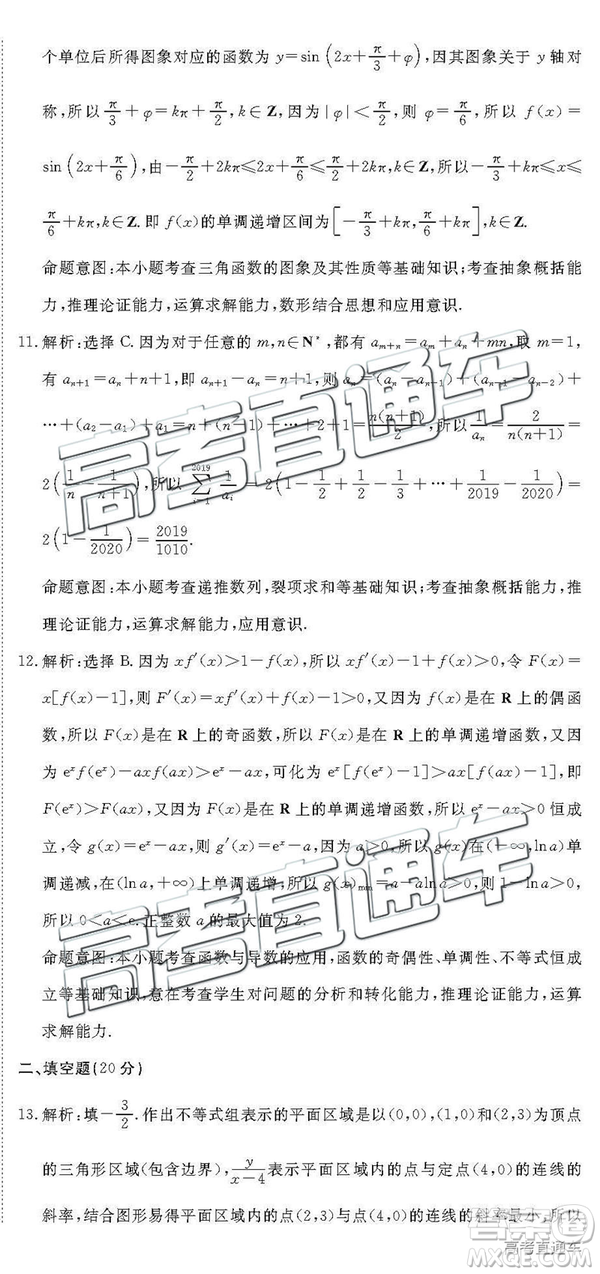 个单位后所得图象对应的函数为 y=sin(2x+π/3+φ),因其图象关于 y 轴对
称,所以 π/3+φ=kπ+π/2,k∈Z,因为|φ|<π/2,则 φ=π/6,所以 f(x)=
sin(2x+π/6),由-π/2+2kπ≤2x+π/6≤π/2+2kπ,k∈Z,所以-π/3+kπ≤x≤
π/6+kπ,k∈Z.即 f(x)的单调递增区间为[-π/3+kπ,π/6+kπ],k∈Z.
命题意图:本小题考查三角函数的图象及其性质等基础知识;考查抽象概括能
力,推理论证能力,运算求解能力,数形结合思想和应用意识.
11.解析:选择 C.因为对于任意的 m,n∈N*,都有 aₘ₊ₙ=aₘ+aₙ+mn,取 m=1,
有 aₙ₊₁=aₙ+n+1,即 aₙ₊₁-aₙ=n+1,则 aₙ=(aₙ-aₙ₋₁)+(aₙ₋₁-aₙ₋₂)+
…+(a₂-a₁)+a₁=n+(n-1)+…+2+1=n(n+1)/2,所以 1/aₙ=2/(n(n+1))=
2(1/n-1/(n+1)),所以 ∑(i=1→2019) 1/aᵢ=2(1-1/2+1/2-1/3+…+1/2019-1/2020)=
2(1-1/2020)=2019/1010.
命题意图:本小题考查递推数列,裂项求和等基础知识;考查抽象概括能力,推
理论证能力,运算求解能力,应用意识.
12.解析:选择 B.因为 xf′(x)>1-f(x),所以 xf′(x)-1+f(x)>0,令 F(x)=
x[f(x)-1],则 F′(x)=xf′(x)+f(x)-1>0,又因为 f(x)是在 R 上的偶函
数,所以 F(x)是在 R 上的奇函数,所以 F(x)是在 R 上的单调递增函数,又因
为 eˣf(eˣ)-axf(ax)>eˣ-ax,可化为 eˣ[f(eˣ)-1]>ax[f(ax)-1],即
F(eˣ)>F(ax),又因为 F(x)是在 R 上的单调递增函数,所以 eˣ-ax>0 恒成
立,令 g(x)=eˣ-ax,则 g′(x)=eˣ-a,因为 a>0,所以 g(x)在(-∞,lna)单
调递减,在(lna,+∞)上单调递增,所以 g(x)min=a-alna>0,则 1-lna>0,
所以 0<a<e.正整数 a 的最大值为 2.
命题意图:本小题考查函数与导数的应用,函数的奇偶性、单调性、不等式恒成
立等基础知识,意在考查学生对问题的分析和转化能力,推理论证能力,运算
求解能力.
二、填空题(20 分)
13.解析:填-3/2.作出不等式组表示的平面区域是以(0,0),(1,0)和(2,3)为顶点
的三角形区域(包含边界),y/(x-4)表示平面区域内的点与定点(4,0)的连线的
斜率,结合图形易得平面区域内的点(2,3)与点(4,0)的连线的斜率最小,所以
高考直通车
高考直通车
高考直通车